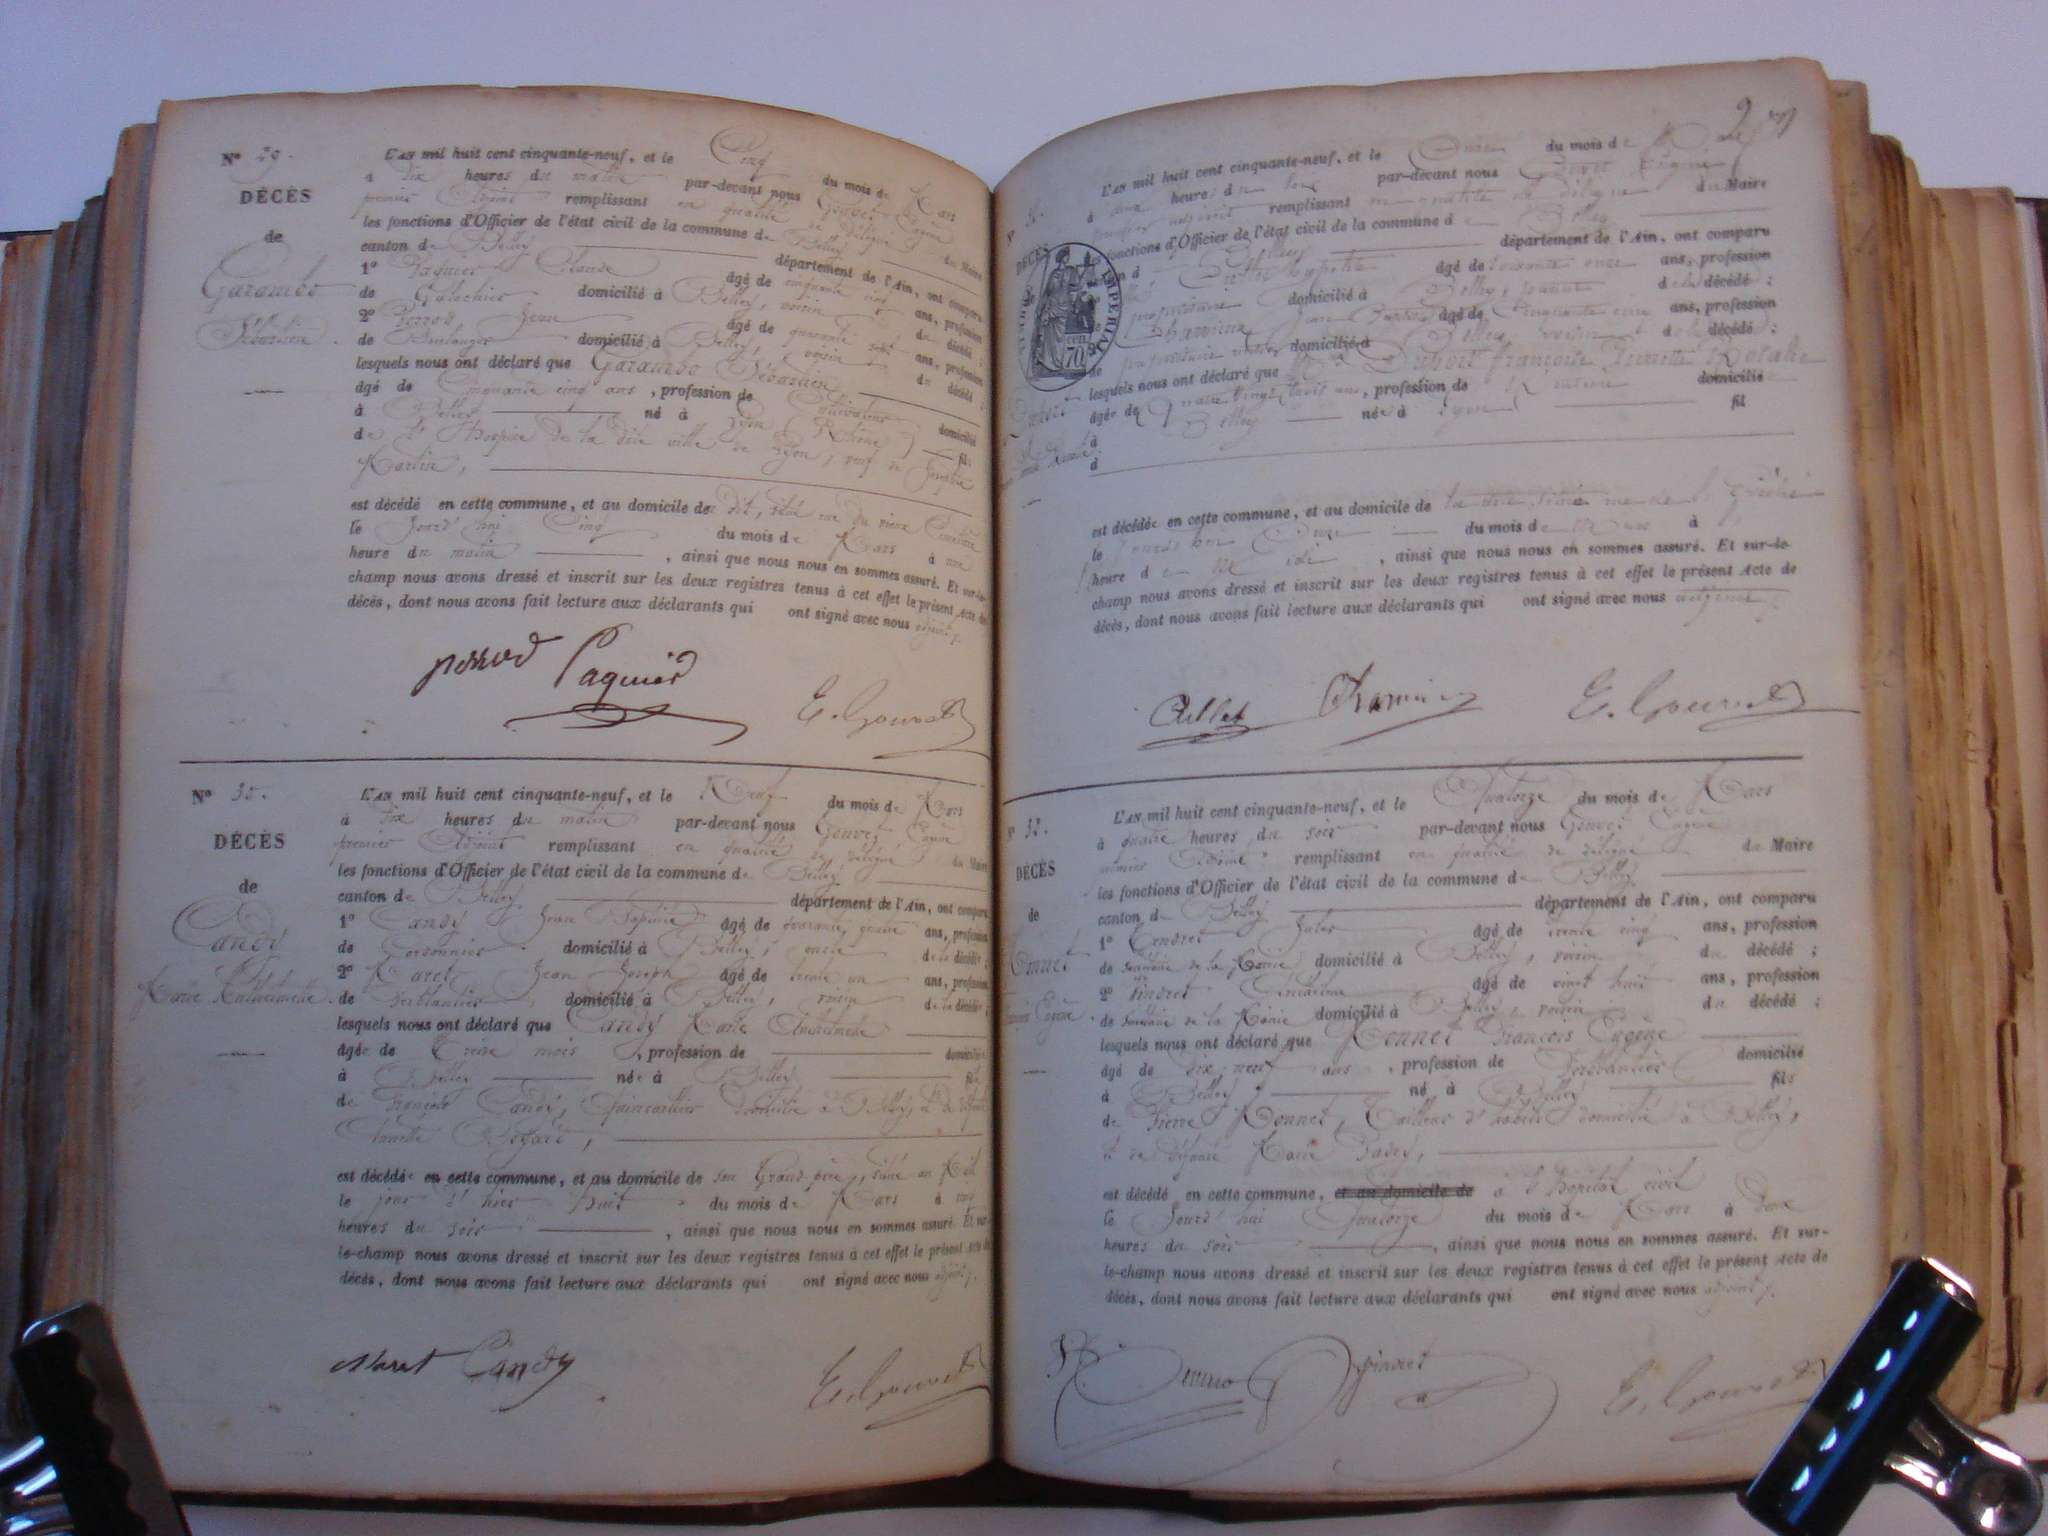 N° 29.
DÉCÈS
de
Garambo
Sébastien.
L'AN mil huit cent cinquante-neuf, et le Cinq du mois de Mars
à dix heures du matin par-devant nous Gouvet Eugène
premier Adjoint remplissant en qualité de délégué du Maire
les fonctions d'Officier de l'état civil de la commune de Belley
canton de Belley département de l'Ain, ont comparu
1° Paquier Claude âgé de cinquante cinq ans, profession
de Galochier domicilié à Belley, voisin du décédé ;
2° Perrod Jean âgé de quarante ans, profession
de Boulanger domicilié à Belley, voisin du décédé ;
lesquels nous ont déclaré que Garambo Sébastien
âgé de Cinquante cinq ans, profession de domicilié
à Belley né à Lyon (Rhône) fils
de l'Hospice de la dite ville de Lyon, veuf de
Martin,
est décédé en cette commune, et au domicile de dit, situé rue du vieux
le jourd'hui Cinq du mois de Mars à une
heure du matin, ainsi que nous nous en sommes assuré. Et sur-le-
champ nous avons dressé et inscrit sur les deux registres tenus à cet effet le présent Acte de
décès, dont nous avons fait lecture aux déclarants qui ont signé avec nous adjoint.
perrod Paquier E. Gouvet
N° 30.
DÉCÈS
de
Candy
Marie
L'AN mil huit cent cinquante-neuf, et le Neuf du mois de Mars
à dix heures du matin par-devant nous Gouvet Eugène
premier Adjoint remplissant en qualité de délégué du Maire
les fonctions d'Officier de l'état civil de la commune de Belley
canton de Belley département de l'Ain, ont comparu
1° Candy Jean Baptiste âgé de quarante quatre ans, profession
de Cordonnier domicilié à Belley, oncle de la décédée ;
2° Maret Jean Joseph âgé de trente un ans, profession
de ferblantier domicilié à Belley, voisin de la décédée ;
lesquels nous ont déclaré que Candy Marie
âgée de Treize mois, profession de domiciliée
à Belley née à Belley fille
de François Candy, Quincaillier domicilié à Belley, et de défunte
est décédée en cette commune, et au domicile de son Grand père, situé au
le jour d'hier huit du mois de Mars à
heures du soir, ainsi que nous nous en sommes assuré. Et sur-
le-champ nous avons dressé et inscrit sur les deux registres tenus à cet effet le présent Acte de
décès, dont nous avons fait lecture aux déclarants qui ont signé avec nous adjoint.
Maret Candy E. Gouvet
DÉCÈS
IMPÉRIAL
70
L'AN mil huit cent cinquante-neuf, et le Onze du mois de Mars
à deux heures du soir par-devant nous Gouvet Eugène
premier adjoint remplissant en qualité de délégué du Maire
les fonctions d'Officier de l'état civil de la commune de Belley
canton de Belley département de l'Ain, ont comparu
âgé de soixante onze ans, profession
de propriétaire domicilié à Belley, de la décédée ;
Jean âgé de Cinquante cinq ans, profession
de propriétaire domicilié à Belley, voisin de la décédée ;
lesquels nous ont déclaré que Françoise
âgée de Quatre vingt huit ans, profession de rentière domiciliée
à Belley née à Lyon fil
d
est décédée en cette commune, et au domicile de la dite, située rue de
le jourd'hui Onze du mois de Mars à
heure de Midi, ainsi que nous nous en sommes assuré. Et sur-le-
champ nous avons dressé et inscrit sur les deux registres tenus à cet effet le présent Acte de
décès, dont nous avons fait lecture aux déclarants qui ont signé avec nous adjoint.
E. Gouvet
N° 32.
DÉCÈS
de
Monnet
François Eugène.
L'AN mil huit cent cinquante-neuf, et le Quatorze du mois de Mars
à quatre heures du soir par-devant nous Gouvet Eugène
premier Adjoint remplissant en qualité de délégué du Maire
les fonctions d'Officier de l'état civil de la commune de Belley
canton de Belley département de l'Ain, ont comparu
1° Jules âgé de trente cinq ans, profession
de Secrétaire de la Mairie domicilié à Belley, voisin du décédé ;
2° Pindret Anthelme âgé de vingt huit ans, profession
de Secrétaire de la Mairie domicilié à Belley, voisin du décédé ;
lesquels nous ont déclaré que Monnet François Eugène
âgé de dix neuf ans, profession de Ferblantier domicilié
à Belley, né à Belley fils
de Pierre Monnet, Tailleur d'habits domicilié à Belley,
et de défunte Marie
est décédé en cette commune, et au domicile de à l'hôpital civil
le jourd'hui Quatorze du mois de Mars à deux
heures du soir, ainsi que nous nous en sommes assuré. Et sur-
le-champ nous avons dressé et inscrit sur les deux registres tenus à cet effet le présent Acte de
décès, dont nous avons fait lecture aux déclarants qui ont signé avec nous adjoint.
Pindret E. Gouvet